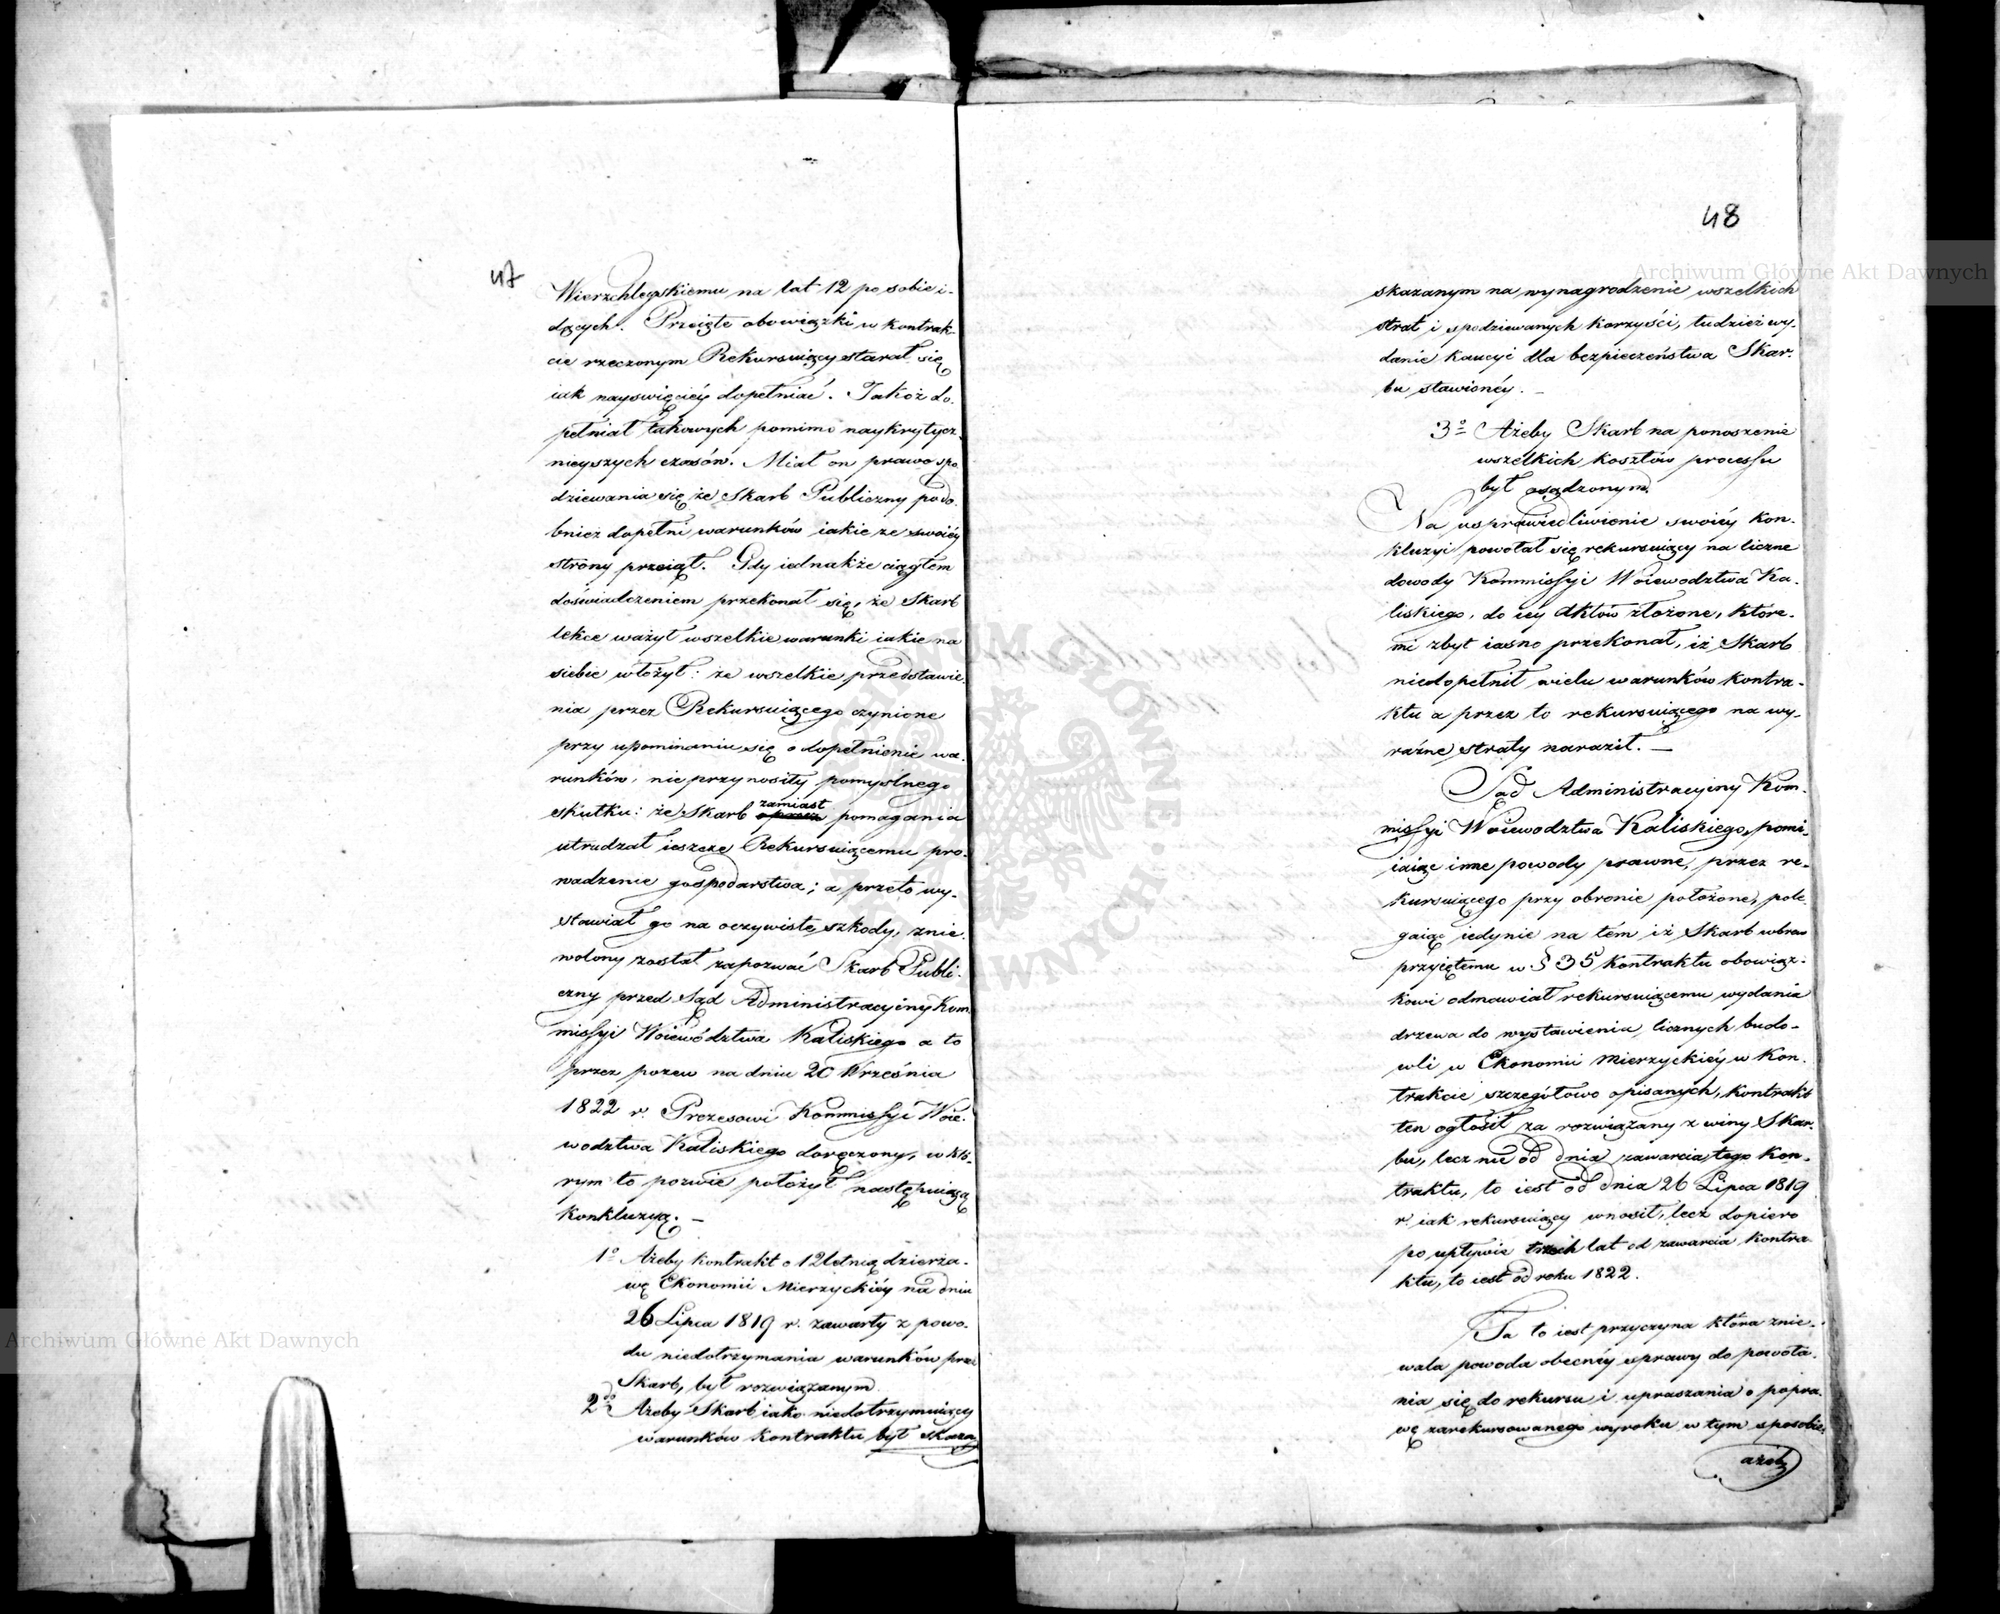 47
Wierzchleyskiemu na lat 12 po sobie i-
dących. Przeięte obowiązki w kontrak-
cie rzeczonym Rekursuiący starał się
iak nayswięciéy dopełniać. Jakoż do-
pełniał takowych pomimo naykrytycz-
nieyszych czasów. Miał on prawo spo-
dziewania się że Skarb Publiczny podo-
bnież dopełni warunków iakie ze swoiéy
strony przeiął. Gdy iednakże ciągłem
doświadczeniem przekonał się, że Skarb
lekce ważył wszelkie warunki iakie na
siebie włożył: że wszelkie przedstawie-
nia przez Rekursuiącego czynione
przy upominaniu się o dopełnienie wa-
runków, nie przynosiły pomyślnego
skutku: że Skarb zamiast pomagania
utrudzał ieszcze Rekursuiącemu pro-
wadzenie gospodarstwa; a przeto wy-
stawiał go na oczywiste szkody, znie-
wolony został zapozwać Skarb Publi-
czny przed Sąd Administracyiny Kom-
missyi Woiewództwa Kaliskiego a to
przez pozew na dniu 20 Września
1822 r. Prezesowi Kommissyi Woie-
wodztwa Kaliskiego doręczony, w któ-
rym to pozwie położył następuiącą
Konkluzyą. –
1o Ażeby kontrakt o 12letnią dzierża-
wę Ekonomii Mierzyckiéy na dniu
26 Lipca 1819 r. zawarty z powo-
du niedotrzymania warunków przez
Skarb, był rozwiązanym.
2do Ażeby Skarb iako niedotrzymuiący
warunków kontraktu był skaza
48
skazanym na wynagrodzenie wszelkich
strat i spodziewanych korzyści, tudzież wy-
danie kaucyi dla bezpieczeństwa Skar-
bu stawionéy. –
3o Ażeby Skarb na ponoszenie
wszelkich kosztów processu
był osądzonym.
Na usprawiedliwienie swoiéy kon-
kluzyi powołał się rekursuiący na liczne
dowody Kommissyi Woiewodztwa Ka-
liskiego, do iey Aktów złożone, które-
mi zbyt iasno przekonał, iż Skarb
niedopełnił wielu warunków kontra-
ktu a przez to rekursuiącego na wy-
raźne straty naraził. –
Sąd Administracyiny Kom-
missyi Woiewodztwa Kaliskiego, pomi-
iaiąc inne powody prawne, przez re-
kursuiącego przy obronie położone, pole-
gaiąc iedynie na tém iż Skarb wbrew
przyiętemu w § 35 kontraktu obowiąz-
kowi odmawiał rekursuiącemu wydania
drzewa do wystawienia licznych budo-
wli w Ekonomii Mierzyckiéy w Kon-
trakcie szczegółowo opisanych, kontrakt
ten ogłosił za rozwiązany z winy Skar-
bu, lecz nie od dnia zawarcia tego Kon-
traktu, to iest od dnia 26 Lipca 1819
r. iak rekursuiący wnosił, lecz dopiero
po upływie trzech lat od zawarcia kontra-
ktu, to iest od roku 1822.
Ta to iest przyczyna która znie-
wala powoda obecnéy sprawy do powoła-
nia się do rekursu i upraszania o popra-
wę zarekursowanego wyroku w tym sposobie:
ażeby
Archiwum Główne Akt Dawnych
Archiwum Główne Akt Dawnych